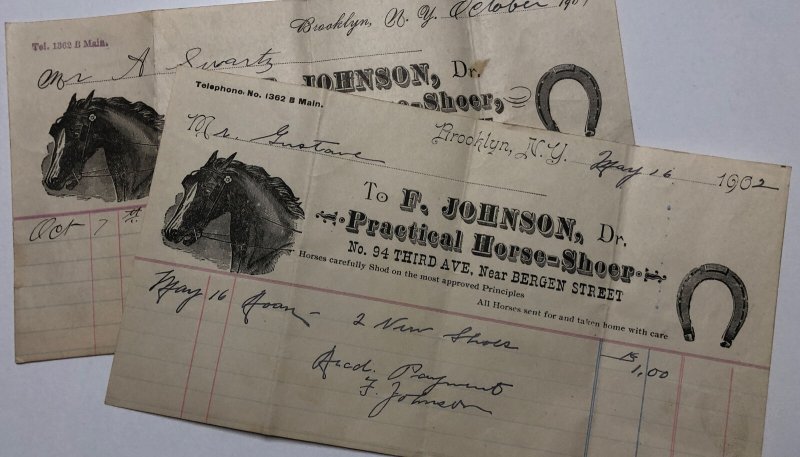 Brooklyn, N.Y. October 190
Tel. 1362 B Main.
Mr A Swartz
JOHNSON, Dr.
Horse-Shoer,
Oct 7
Telephone. No. 1362 B Main.
Brooklyn, N.Y. May 16 1902
Mr. Gustave
To F. JOHNSON, Dr.
Practical Horse-Shoer
No. 94 THIRD AVE, Near BERGEN STREET
Horses carefully Shod on the most approved Principles
All Horses sent for and taken home with care
May 16 Roan - 2 New Shoes 1,00
Recd. Payment
F. Johnson